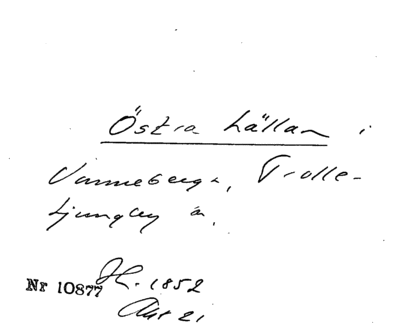 Östra hällan i
Vanneberga, Trolle-
Ljungby sn.
Nr 10877 H. 1852
Akt 21